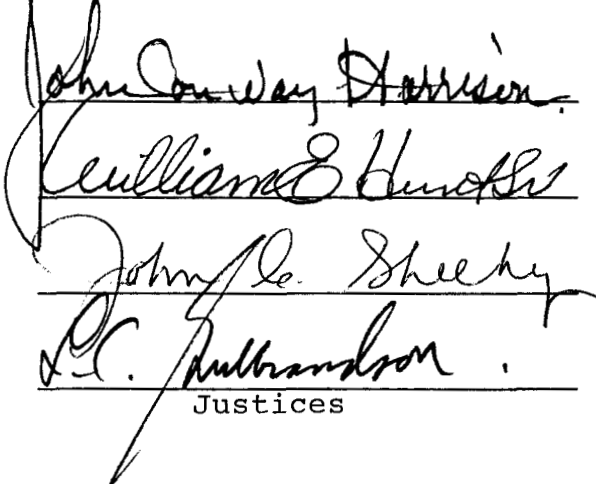 John Conway Harrison.
William E Hunt Sr
John C. Sheehy
L.C. Gulbrandson.
Justices